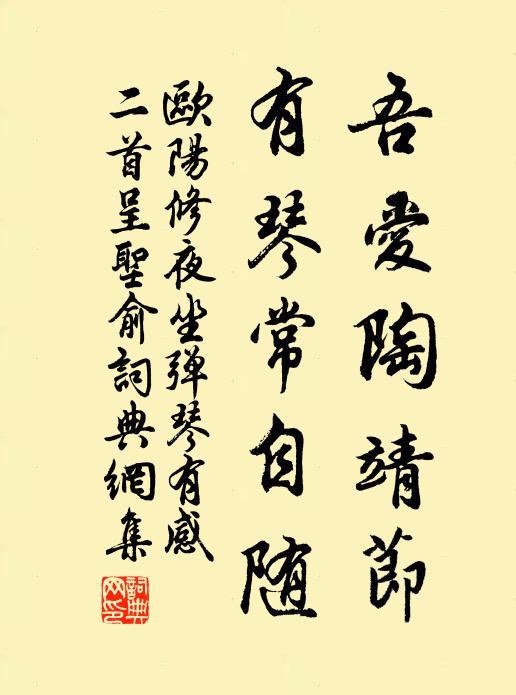 吾愛陶靖節
有琴常自随
歐陽修夜坐弹琴有感
二首呈聖俞詞典網集
詞典
网印